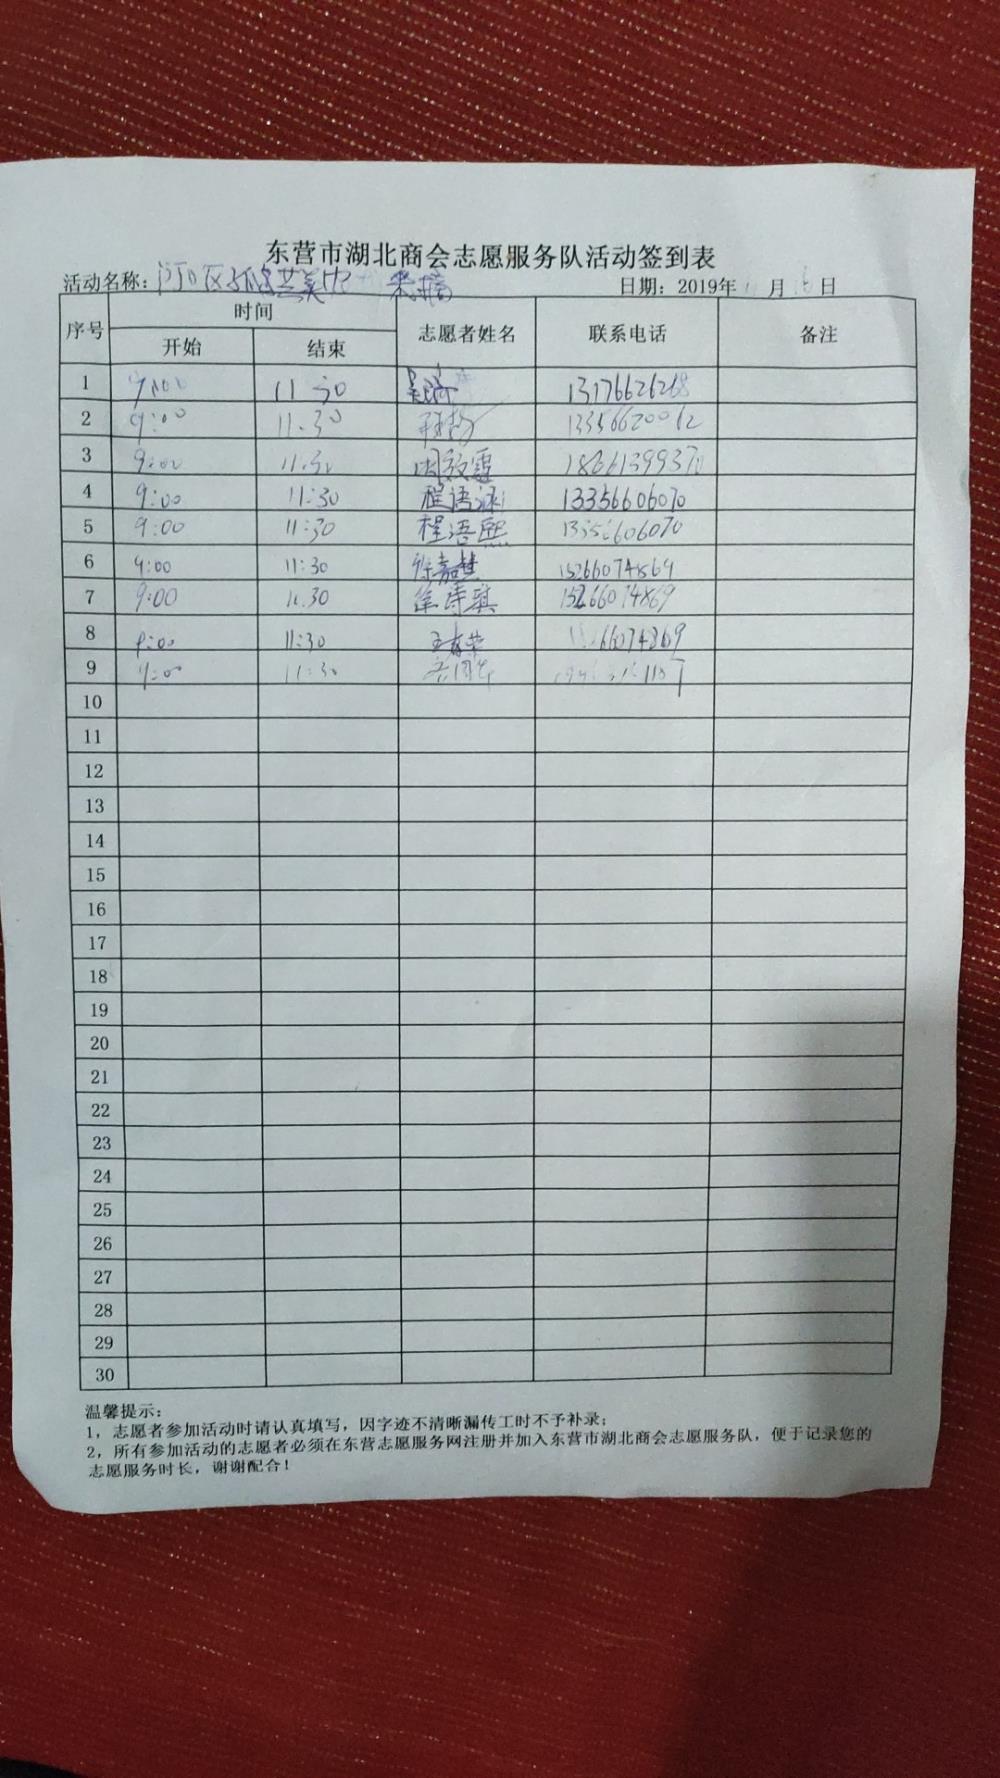 东营市湖北商会志愿服务队活动签到表
活动名称: 河口区 采摘 日期: 2019年 月 日
序号 时间 志愿者姓名 联系电话 备注
开始 结束
1 9:00 11 30 131766262
2 9:00 11.30
3 9:00 11:30 周效霆
4 9:00 11:30 程语涵 13356606070
5 9:00 11:30 程语熙 13356606070
6 9:00 11:30 15266074869
7 9:00 11.30 徐诗骐 15266074869
8 9:00 11:30 王春荣 66074869
9 9:00 11:30
10
11
12
13
14
15
16
17
18
19
20
21
22
23
24
25
26
27
28
29
30
温馨提示:
1，志愿者参加活动时请认真填写，因字迹不清晰漏传工时不予补录；
2，所有参加活动的志愿者必须在东营志愿服务网注册并加入东营市湖北商会志愿服务队，便于记录您的
志愿服务时长，谢谢配合！